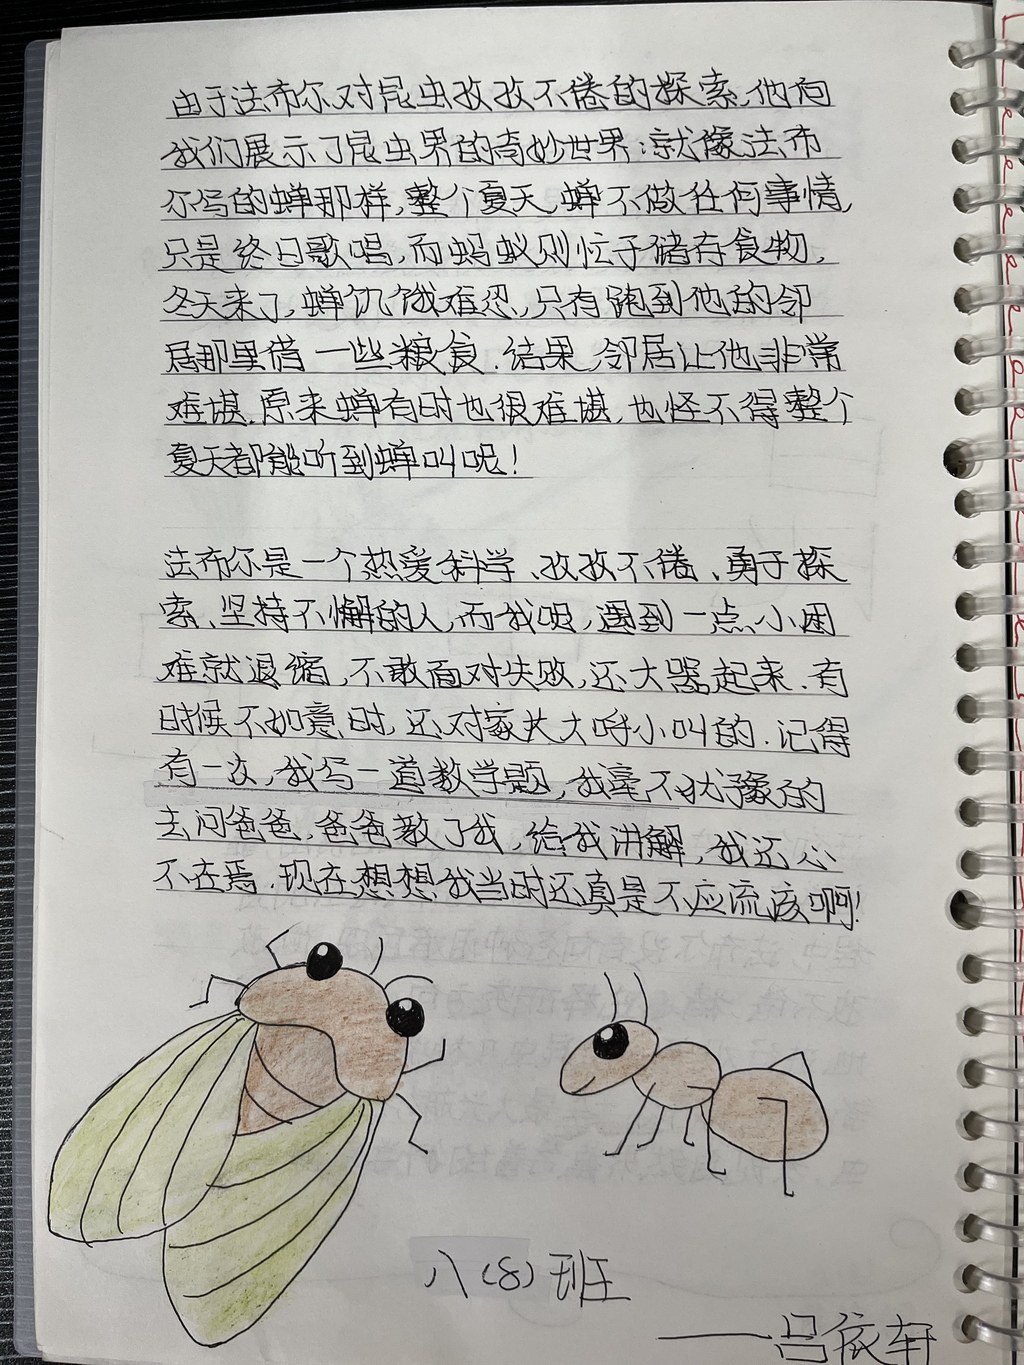 由于法布尔对昆虫孜孜不倦的探索,他向
我们展示了昆虫界的奇妙世界:就像法布
尔写的蝉那样,整个夏天,蝉不做任何事情,
只是终日歌唱,而蚂蚁则忙于储存食物,
冬天来了,蝉饥饿难忍,只有跑到他的邻
居那里借一些粮食.结果,邻居让他非常
难堪.原来蝉有时也很难堪,也怪不得整个
夏天都能听到蝉叫呢!
法布尔是一个热爱科学、孜孜不倦、勇于探
索、坚持不懈的人,而我呢,遇到一点小困
难就退缩,不敢面对失败,还大器起来.有
时候不如意时,还对家长大呼小叫的.记得
有一次,我写一道数学题,我毫不犹豫的
去问爸爸,爸爸教了我,给我讲解,我还心
不在焉.现在想想我当时还真是不应该啊!
八(8)班
——吕依轩